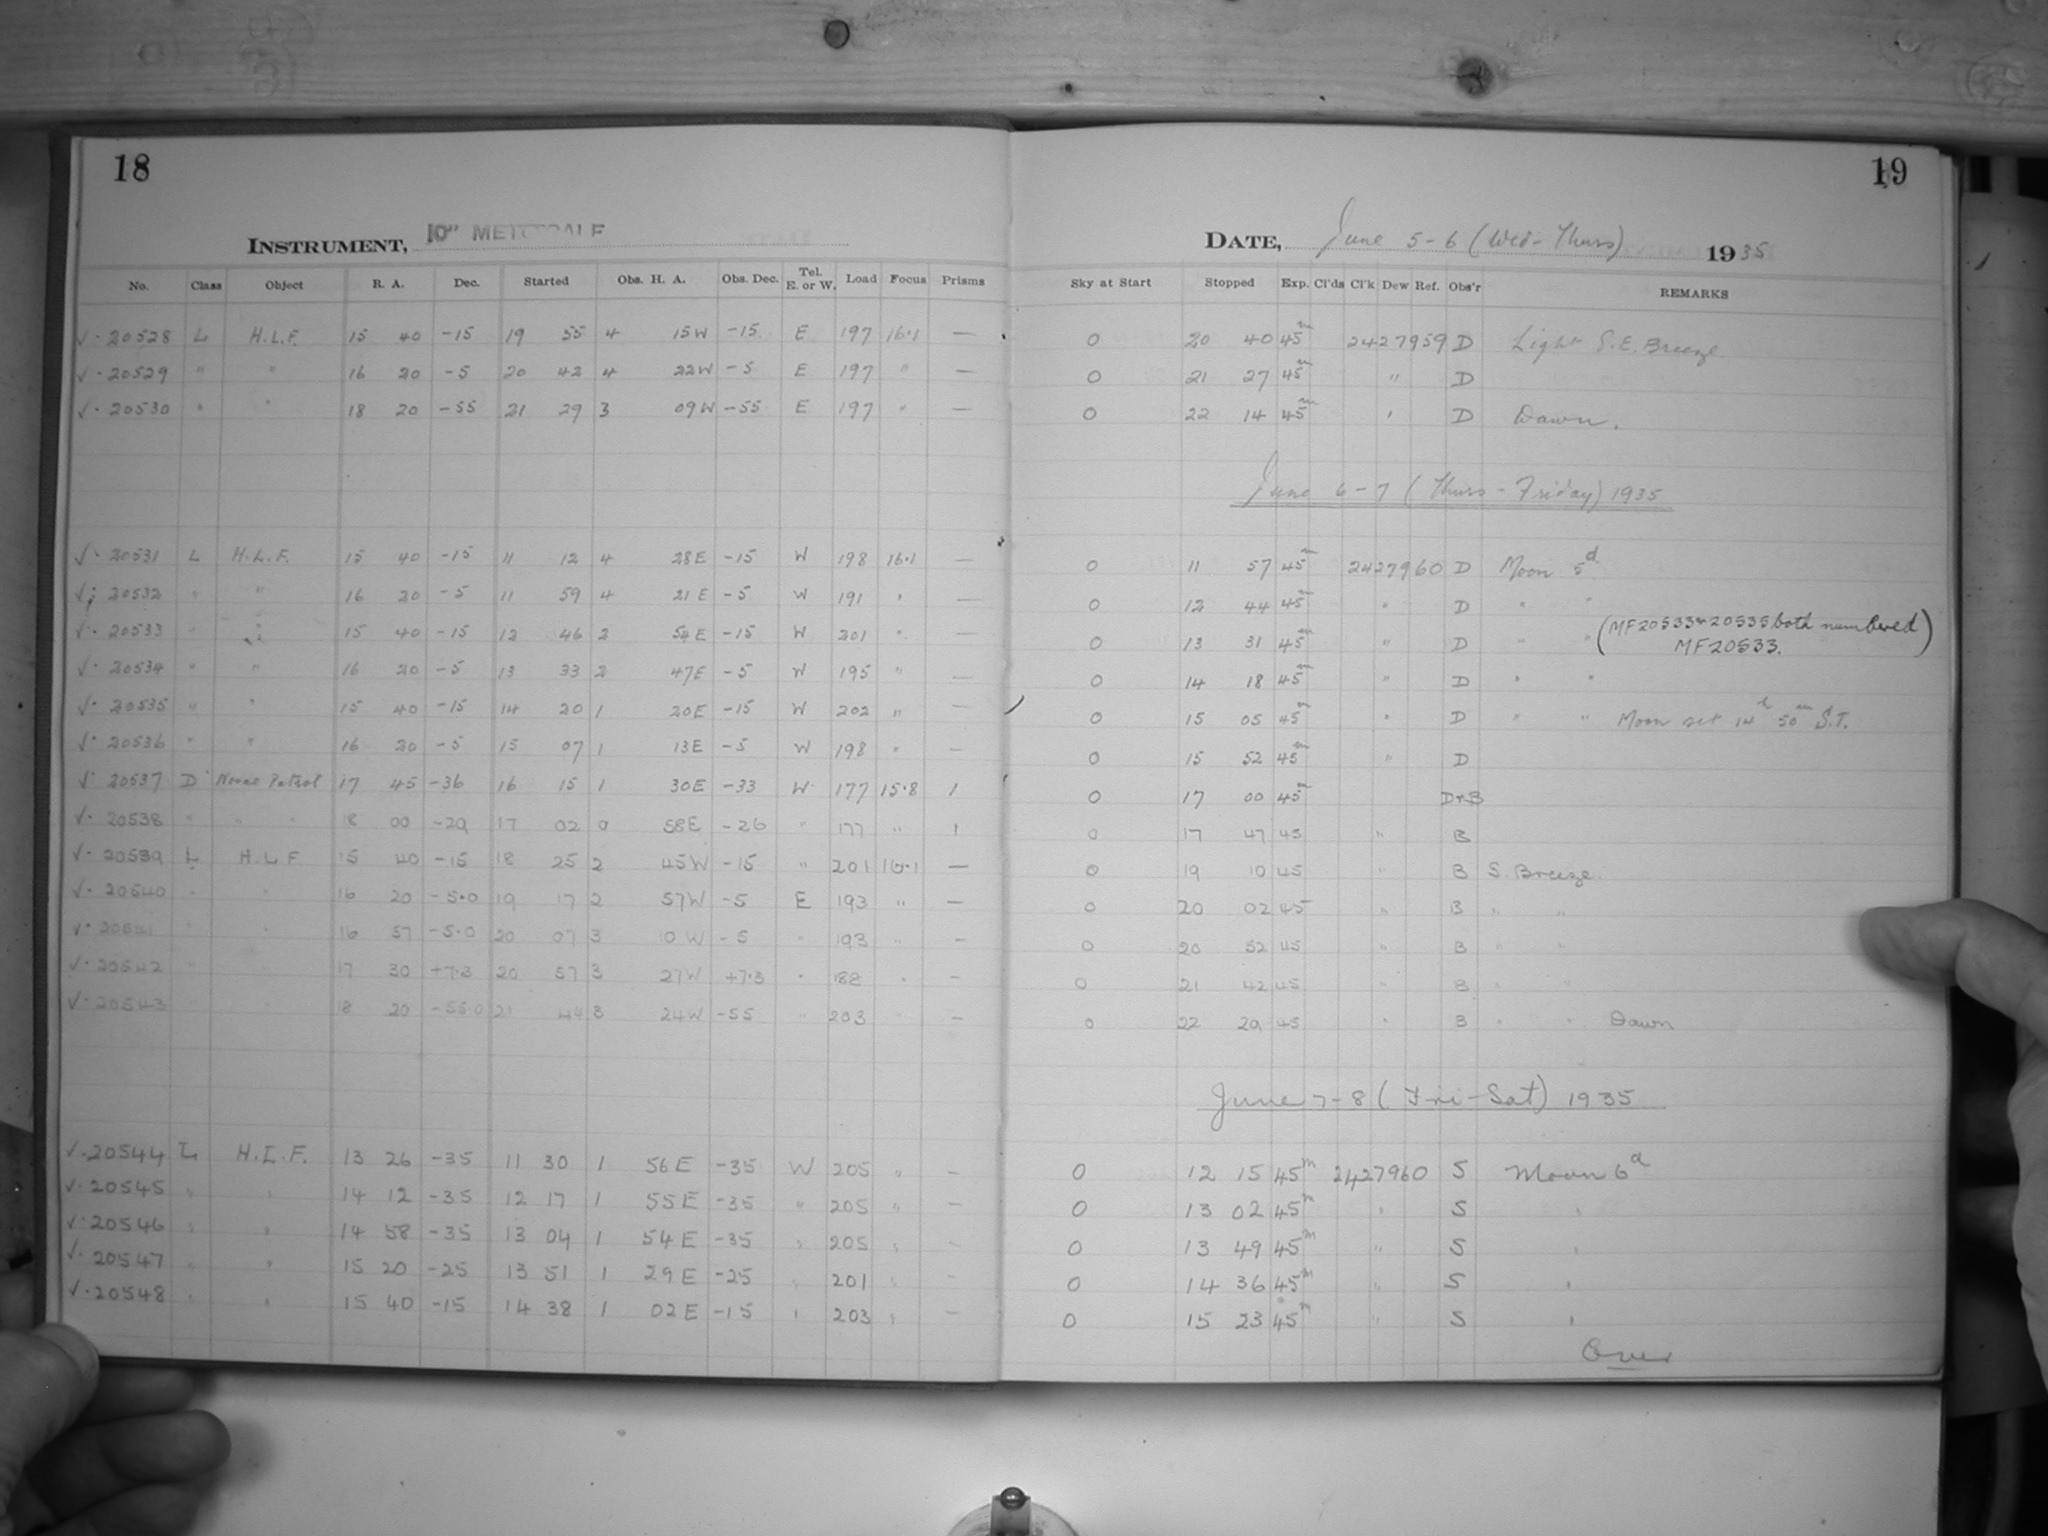 18
INSTRUMENT, 10" METCALF
No. Class Object R. A. Dec. Started Obs. H. A. Obs. Dec. Tel. E. or W. Load Focus Prisms
√· 20528 L H.L.F. 15 40 -15 19 55 4 15W -15 E 197 16.1 —
√· 20529 " " 16 20 -5 20 42 4 22W -5 E 197 " —
√· 20530 " " 18 20 -55 21 29 3 09W -55 E 197 " —
√· 20531 L H.L.F. 15 40 -15 11 12 4 28E -15 W 198 16.1 —
√· 20532 " " 16 20 -5 11 59 4 21E -5 W 191 " —
√· 20533 " " 15 40 -15 12 46 2 54E -15 W 201 " —
√· 20534 " " 16 20 -5 13 33 2 47E -5 W 195 " —
√· 20535 " " 15 40 -15 14 20 1 20E -15 W 202 " —
√· 20536 " " 16 20 -5 15 07 1 13E -5 W 198 " —
√· 20537 D Novae Patrol 17 45 -36 16 15 1 30E -33 W 177 15.8 1
√· 20538 " " " 18 00 -29 17 02 0 58E -26 " 177 " 1
√· 20539 L H.L.F 15 40 -15 18 25 2 45W -15 " 201 16.1 —
√· 20540 " " 16 20 -5.0 19 17 2 57W -5 E 193 " —
√· 20541 " " 16 57 -5.0 20 07 3 10W -5 " 193 " —
√· 20542 " " 17 30 +7.3 20 57 3 27W +7.3 " 188 " —
√· 20543 " " 18 20 -55.0 21 44 3 24W -55 " 203 " —
√· 20544 L H.L.F. 13 26 -35 11 30 1 56E -35 W 205 " —
√· 20545 " " 14 12 -35 12 17 1 55E -35 " 205 " —
√· 20546 " " 14 58 -35 13 04 1 54E -35 " 205 " —
√· 20547 " " 15 20 -25 13 51 1 29E -25 " 201 " —
√· 20548 " " 15 40 -15 14 38 1 02E -15 " 203 " —
19
DATE, June 5-6 (Wed-Thurs) 1935
Sky at Start Stopped Exp. Cl'ds Cl'k Dew Ref. Obs'r REMARKS
0 20 40 45m 2427959 D Light S.E. Breeze
0 21 27 45m " D
0 22 14 45m " D Dawn.
June 6-7 (Thurs-Friday) 1935
0 11 57 45m 2427960 D Moon 5d
0 12 44 45m " D " "
0 13 31 45m " D " " (MF20533 & 20535 both numbered MF20533.)
0 14 18 45m " D " "
0 15 05 45m " D " " Moon set 14h 50m S.T.
0 15 52 45m " D
0 17 00 45m D+B
0 17 47 45 " B
0 19 10 45 " B S. Breeze.
0 20 02 45 " B " "
0 20 52 45 " B " "
0 21 42 45 " B " "
0 22 29 45 " B " " Dawn
June 7-8 (Fri-Sat) 1935
0 12 15 45m 2427960 S Moon 6d
0 13 02 45m " S "
0 13 49 45m " S "
0 14 36 45m " S "
0 15 23 45m " S "
Over